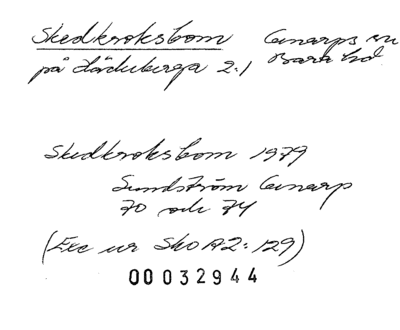 Skedkroksbom Genarps sn
på Häckeberga 2:1 Bara hd.
Skedkroksbom 1979
Sundström Genarp
70 och 74
(Exc ur Sko A2:129)
00032944